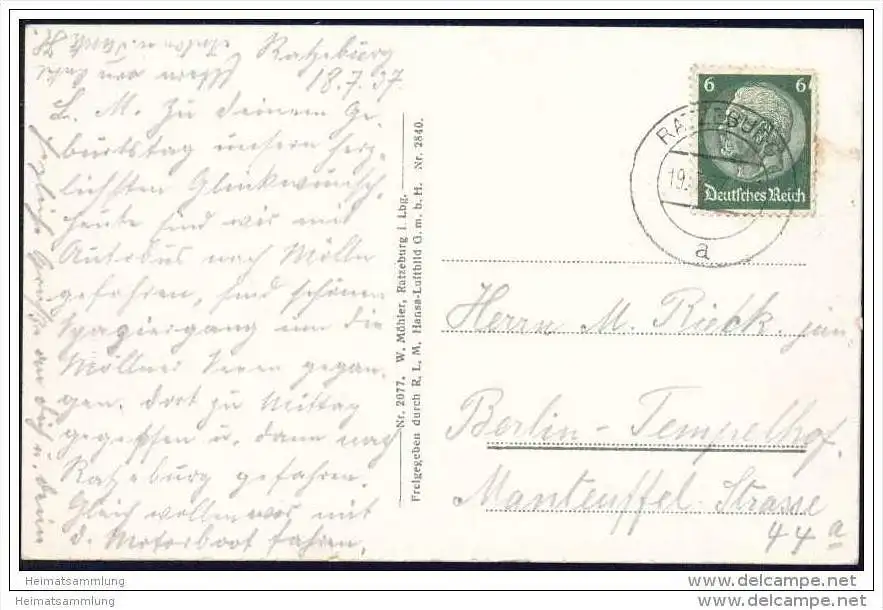 Ratzeburg
18.7.37.
L. M. Zu Deinem Ge-
burtstag unsern herz-
lichsten Glückwunsch.
Heute sind wir mit
Autobus nach Mölln
gefahren, sind schönen
Spaziergang um die
Möllner Seeen gegan-
gen. dort zu Mittag
gegessen u. dann nach
Ratzeburg gefahren.
Gleich wollen wir mit
d. Motorboot fahren.
Herzliche Grüße an Dich u. Deine
Nr. 2077. W. Möhler, Ratzeburg i. Lbg.
Freigegeben durch R. L. M. Hansa-Luftbild G. m. b. H. Nr. 2840.
6 6
Deutsches Reich
RATZEBURG
19.
a
Herrn M. Rieck jun.
Berlin-Tempelhof.
Manteuffel-Strasse
44a
Heimatsammlung
Heimatsammlung
www.delcampe.net
www.delcampe.net